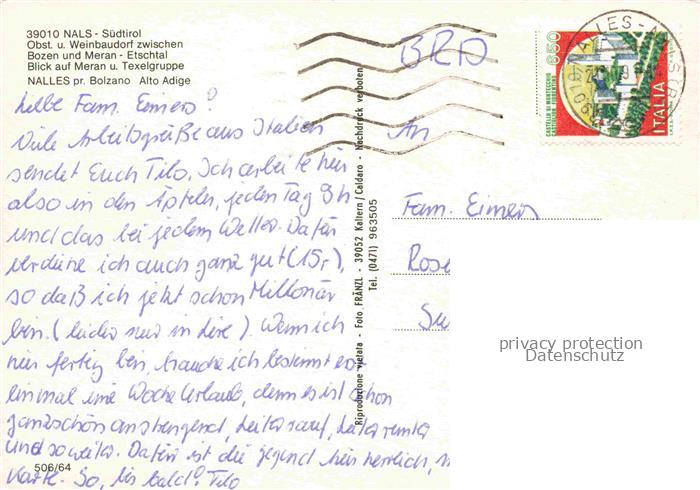 39010 NALS - Südtirol
Obst. u. Weinbaudorf zwischen
Bozen und Meran - Etschtal
Blick auf Meran u. Texelgruppe
NALLES pr. Bolzano Alto Adige
Liebe Fam. Eimers!
Viele Arbeitsgrüße aus Italien
sendet Euch Tilo. Ich arbeite hier
also in den Äpfeln, jeden Tag 9h
und das bei jedem Wetter. Dafür
verdiene ich auch ganz gut (15,-),
so daß ich jetzt schon Millionär
bin. (leider nur in Lire). Wenn ich
hier fertig bin, brauche ich bestimmt erst
einmal eine Woche Urlaub, denn es ist schon
ganzschön anstrengend, Leiter rauf, Leiter runter
und so weiter. Dafür ist die Gegend hier herrlich,
Karte. So, bis bald! Tilo
506/64
Riproduzione vietata - Foto. FRÄNZL - 39052 Kaltern / Caldaro - Nachdruck verboten
Tel. (0471) 963505
BRD
An
Fam. Eimers
Rose
Su
650
CASTELLO DI MONTECCHIO
CASTIGLION FIORENTINO
ITALIA
privacy protection
Datenschutz